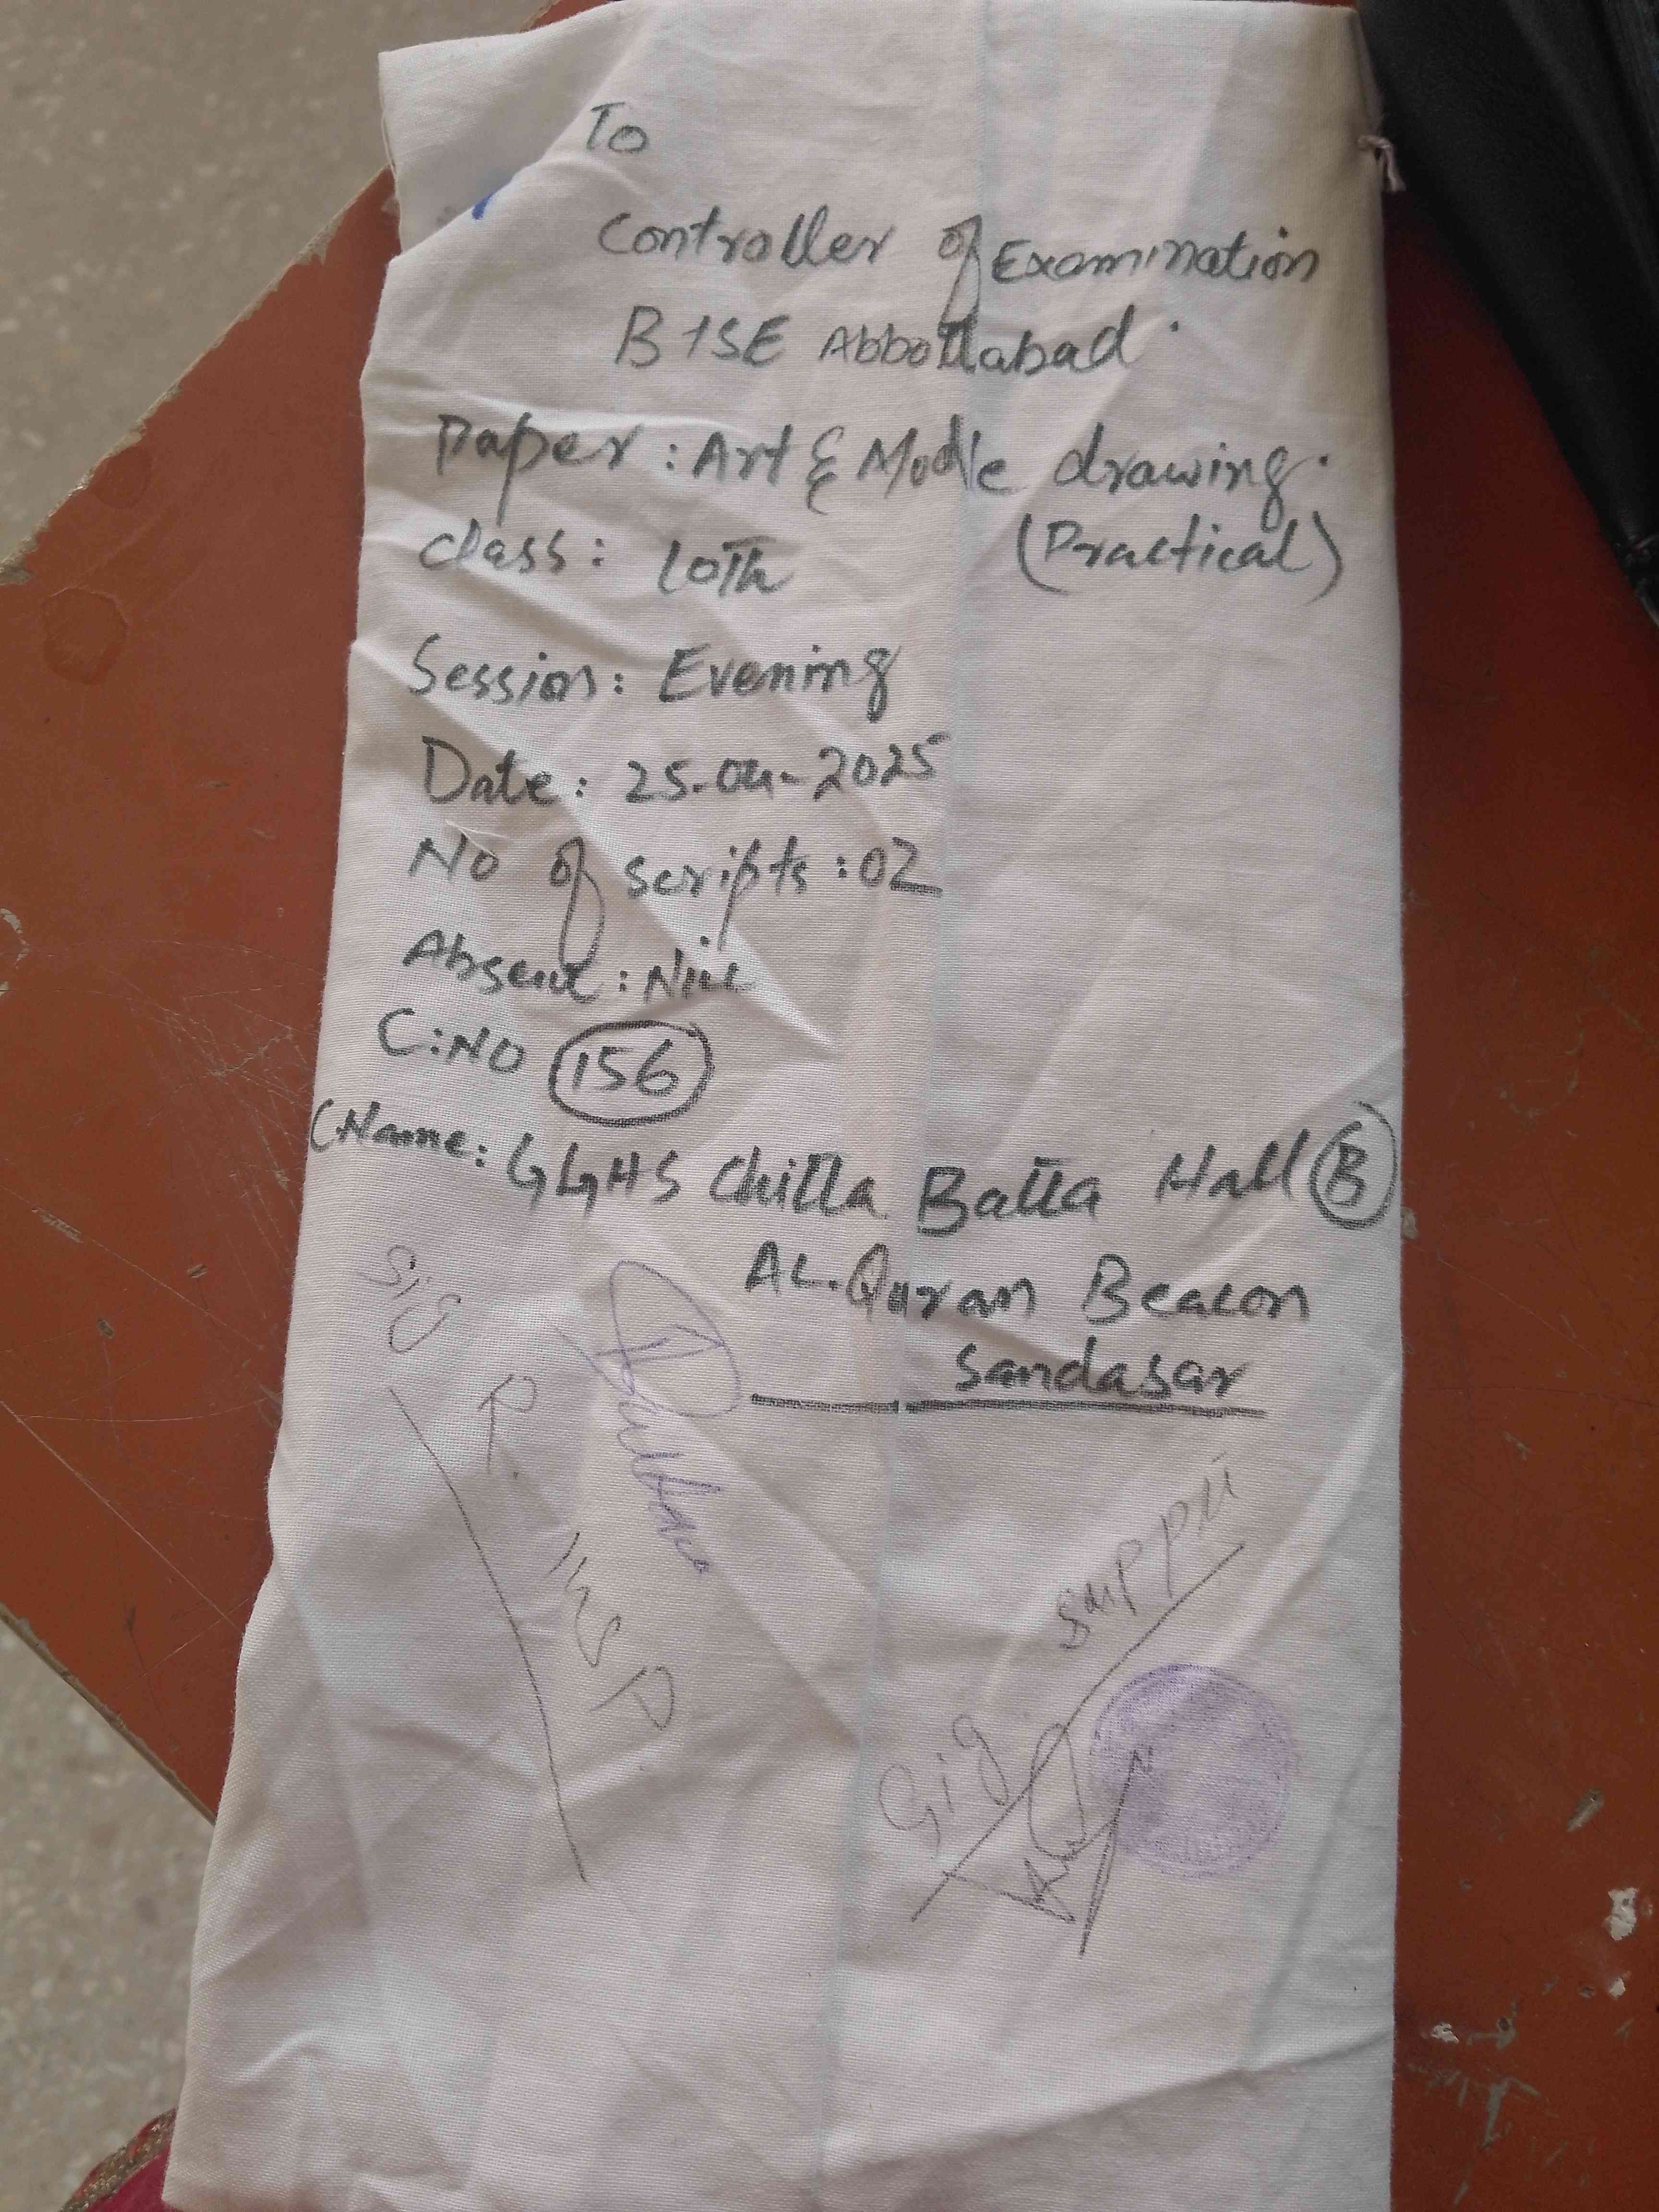 To
Controller of Examination
BISE Abbottabad.
Paper: Art & Modle drawing.
(Practical)
Class: 10th
Session: Evening
Date: 25-04-2025
No of scripts: 02
Absent: Nill
C:NO 156
C.Name: GGHS Chitta Batta Hall B
AL-Quran Beacon
Sandasar
Sig R-Insp
Sig Supdtt